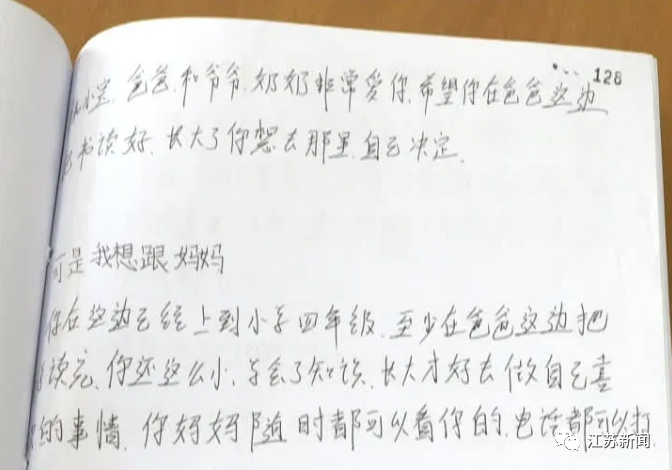 128
小宝, 爸爸, 和爷爷, 奶奶非常爱你, 希望你在爸爸这边
书读好, 长大了你想去那里, 自己决定.
可是我想跟妈妈
你在这边已经上到小学四年级, 至少在爸爸这边把
读完, 你还这么小, 学会了知识, 长大才好去做自己喜
的事情, 你妈妈随时都可以看你的, 电话都可以打
江苏新闻